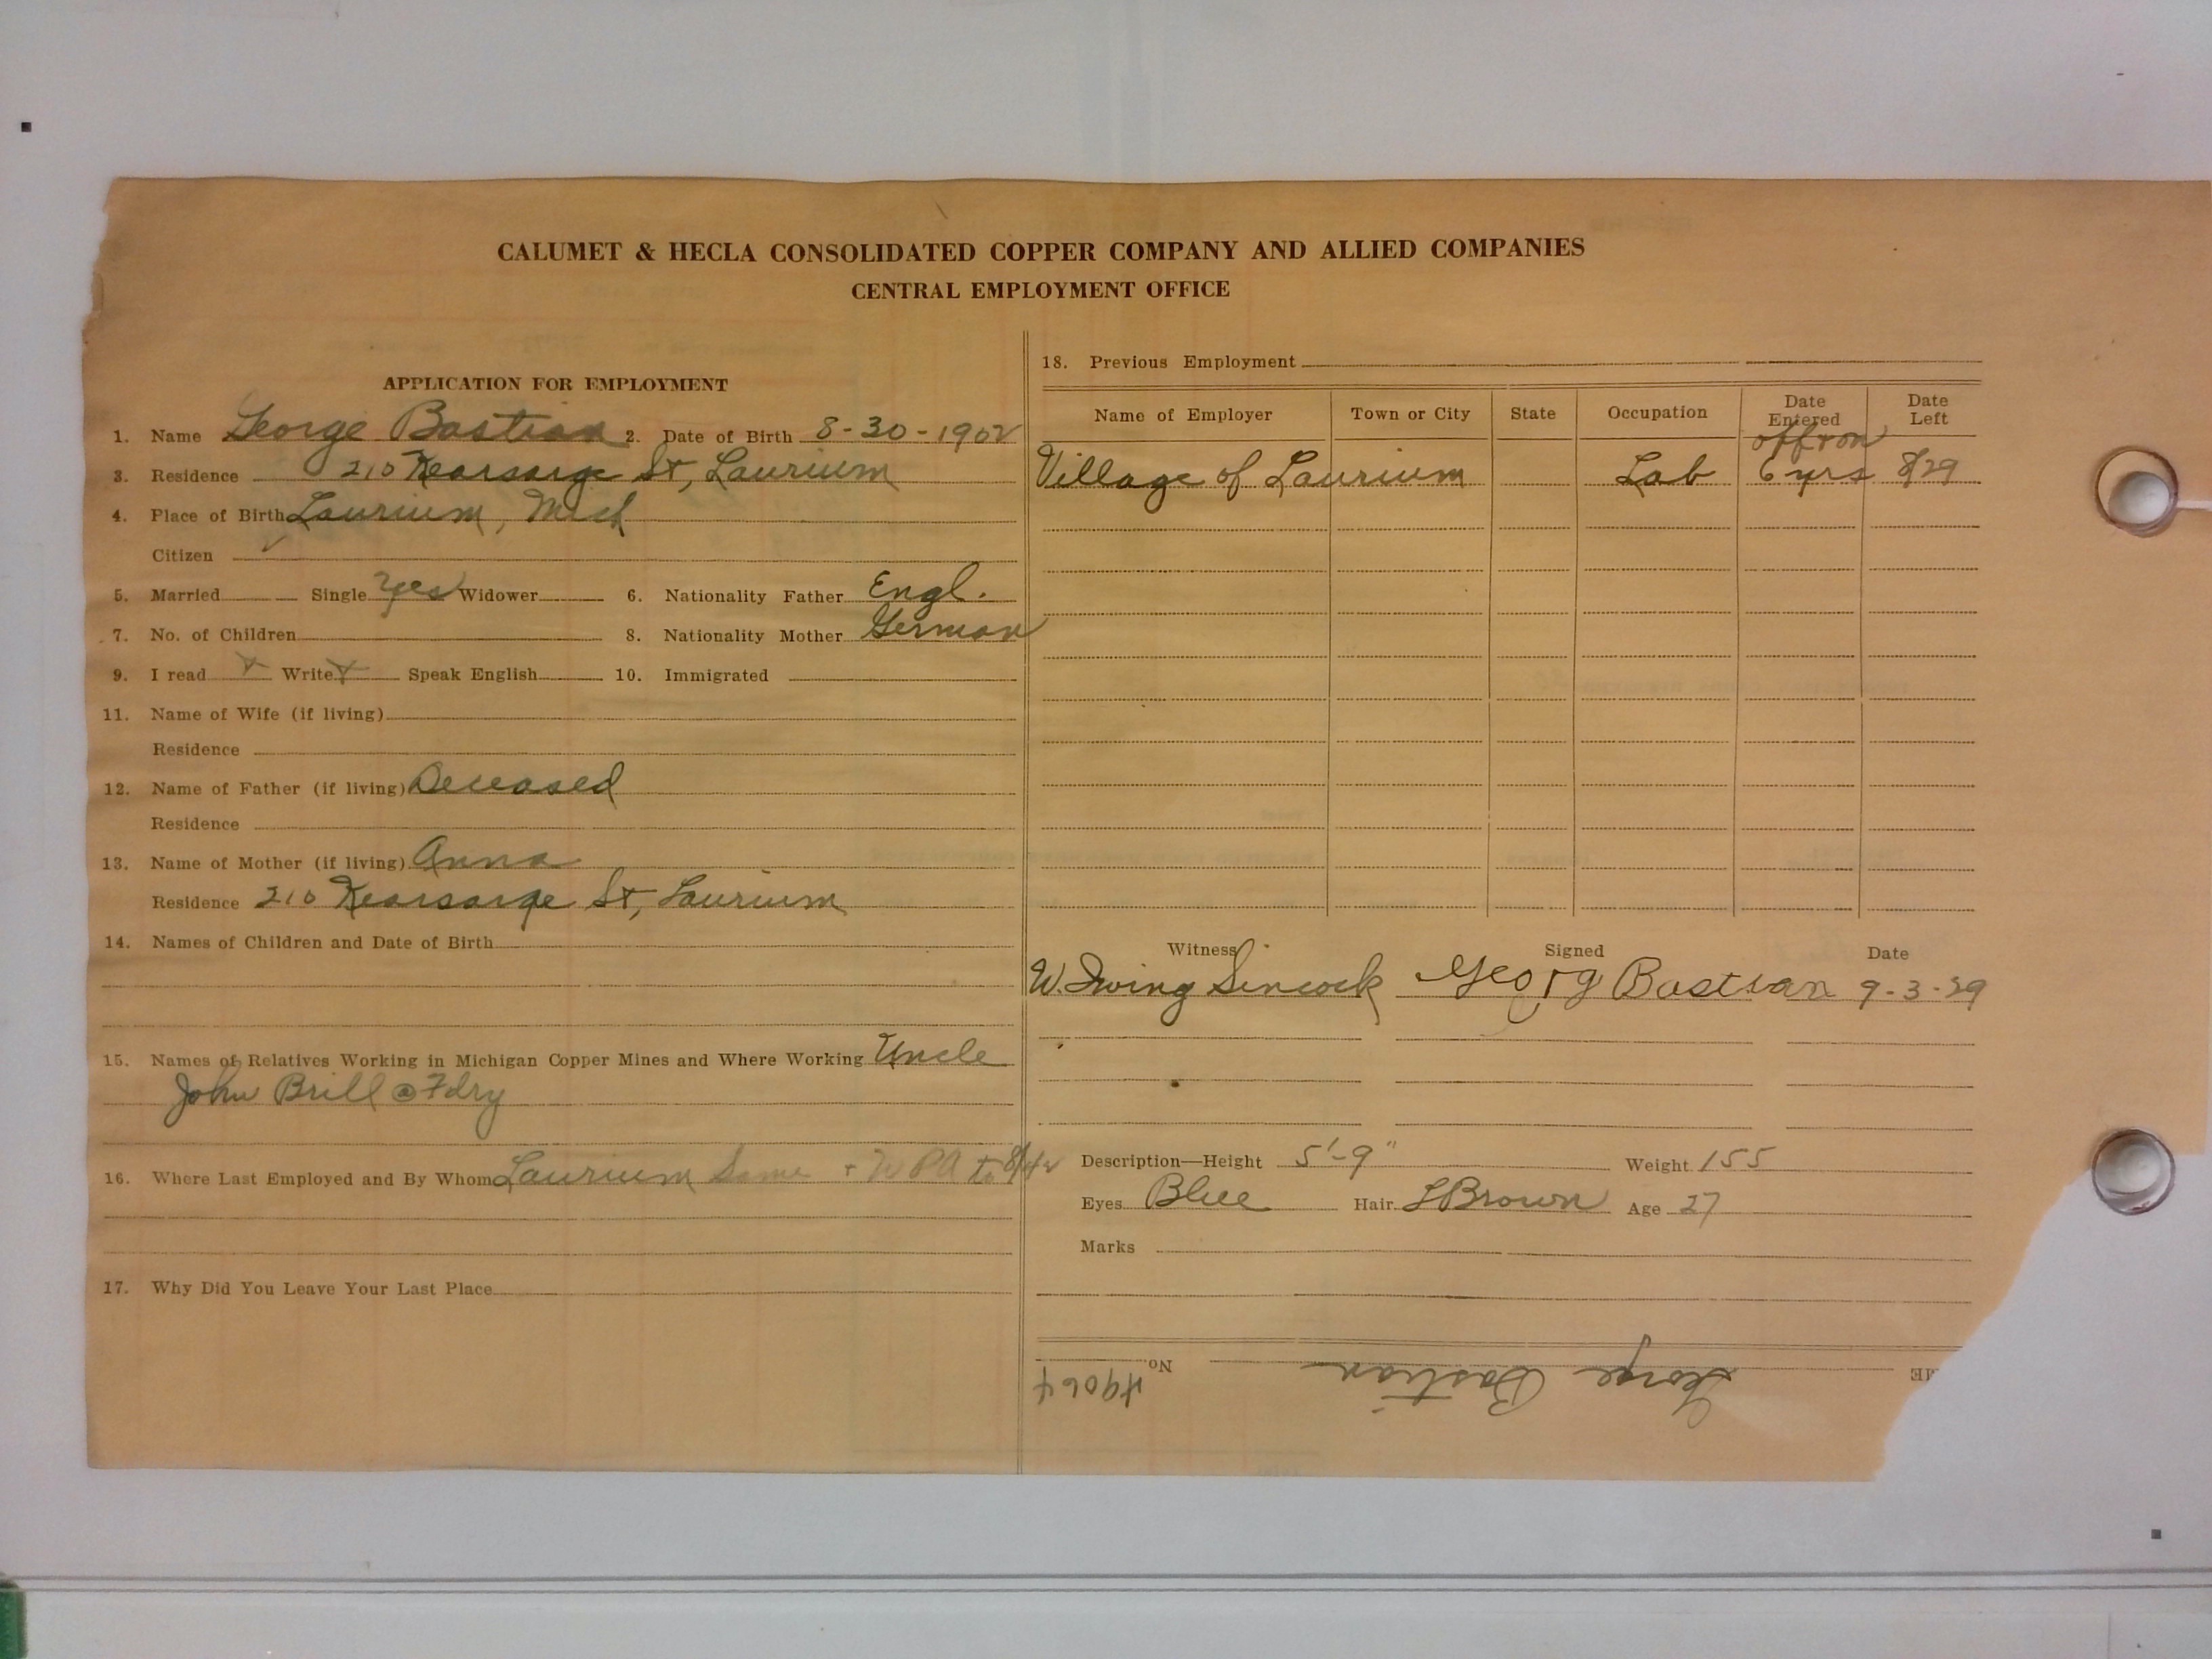 CALUMET & HECLA CONSOLIDATED COPPER COMPANY AND ALLIED COMPANIES
CENTRAL EMPLOYMENT OFFICE
APPLICATION FOR EMPLOYMENT
1. Name George Bastian 2. Date of Birth 8-30-1902
3. Residence 210 Kearsarge St, Laurium
4. Place of Birth Laurium, Mich
Citizen ✓
5. Married Single Yes Widower 6. Nationality Father Engl.
7. No. of Children 8. Nationality Mother German
9. I read x Write x Speak English 10. Immigrated
11. Name of Wife (if living)
Residence
12. Name of Father (if living) Deceased
Residence
13. Name of Mother (if living) Anna
Residence 210 Kearsarge St, Laurium
14. Names of Children and Date of Birth
15. Names of Relatives Working in Michigan Copper Mines and Where Working Uncle
John Brill @ Fdry
16. Where Last Employed and By Whom Laurium Same + WPA to
17. Why Did You Leave Your Last Place
18. Previous Employment
Name of Employer Town or City State Occupation Date Entered Date Left
off & on
Village of Laurium Lab 6 yrs 8/29
Witness Signed Date
W. Irving Sincock Georg Bastian 9-3-29
Description—Height 5'-9" Weight 155
Eyes Blue Hair LBrown Age 27
Marks
George Bastian No. 49064